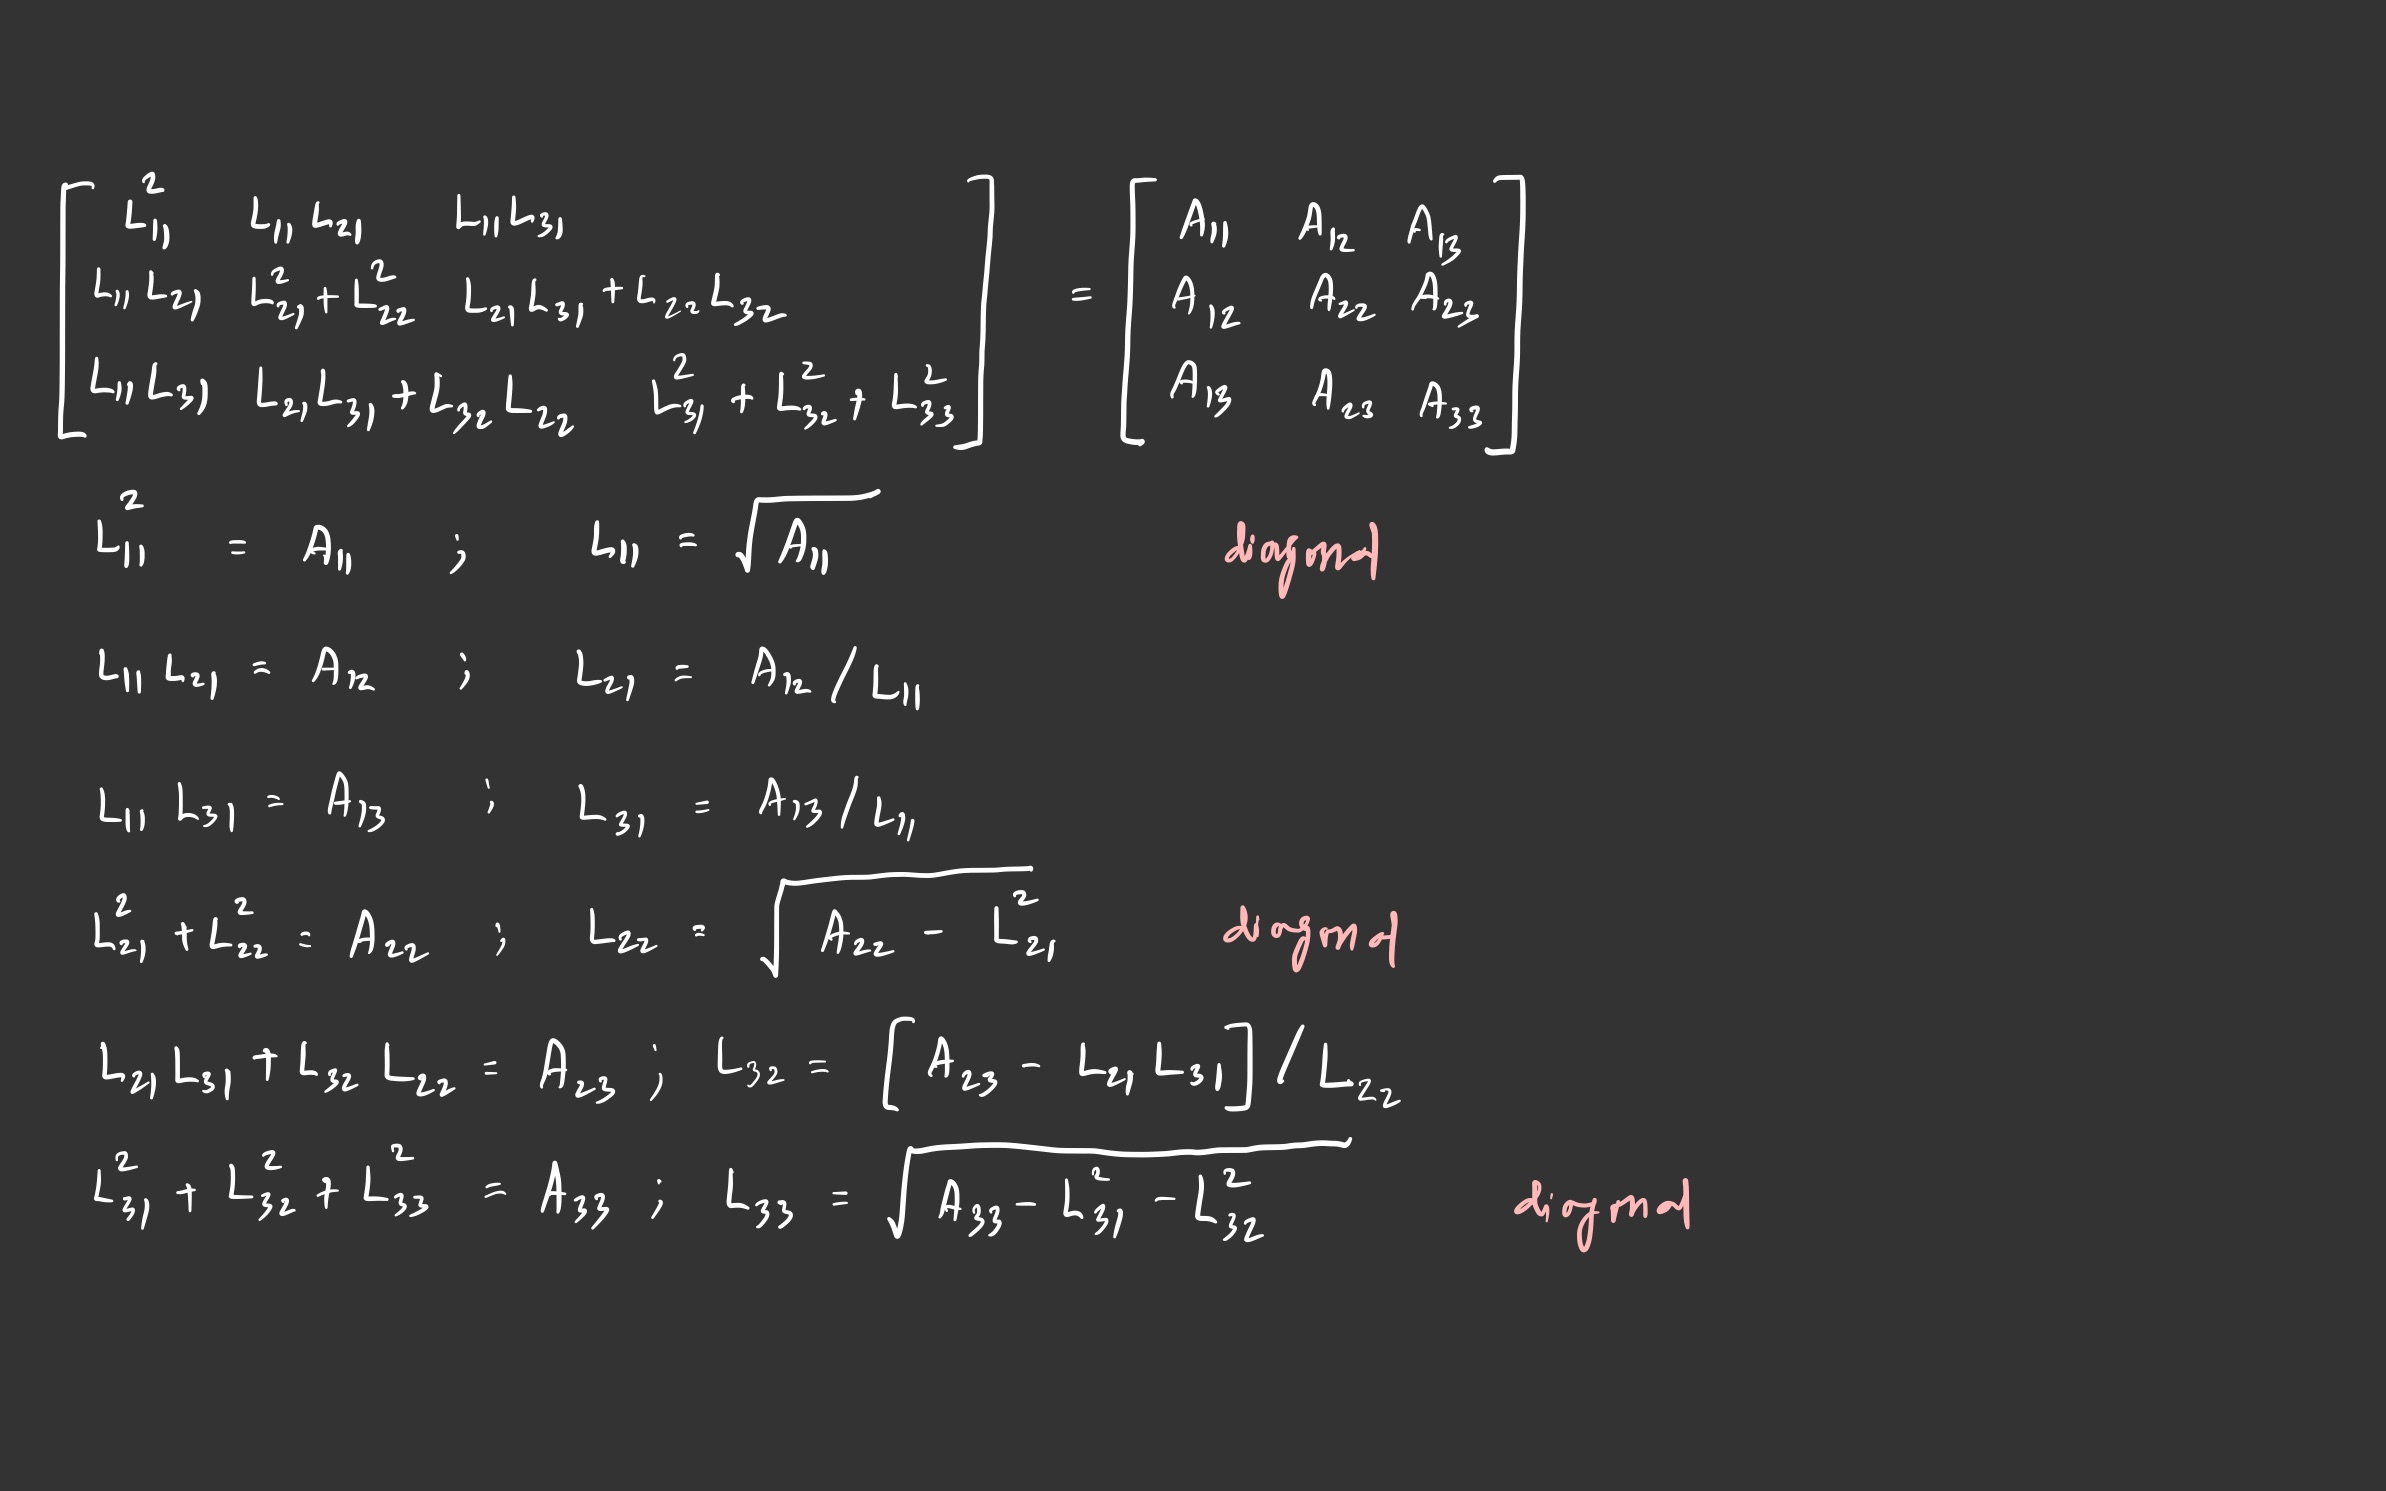 [ L₁₁² L₁₁ L₂₁ L₁₁ L₃₁ ] [ A₁₁ A₁₂ A₁₃ ]
[ L₁₁ L₂₁ L₂₁² + L₂₂² L₂₁ L₃₁ + L₂₂ L₃₂ ] = [ A₁₂ A₂₂ A₂₃ ]
[ L₁₁ L₃₁ L₂₁ L₃₁ + L₃₂ L₂₂ L₃₁² + L₃₂² + L₃₃² ] [ A₁₃ A₂₃ A₃₃ ]
L₁₁² = A₁₁ ; L₁₁ = √(A₁₁) diagonal
L₁₁ L₂₁ = A₁₂ ; L₂₁ = A₁₂ / L₁₁
L₁₁ L₃₁ = A₁₃ ; L₃₁ = A₁₃ / L₁₁
L₂₁² + L₂₂² = A₂₂ ; L₂₂ = √(A₂₂ - L₂₁²) diagonal
L₂₁ L₃₁ + L₃₂ L₂₂ = A₂₃ ; L₃₂ = [ A₂₃ - L₂₁ L₃₁ ] / L₂₂
L₃₁² + L₃₂² + L₃₃² = A₃₃ ; L₃₃ = √(A₃₃ - L₃₁² - L₃₂²) diagonal